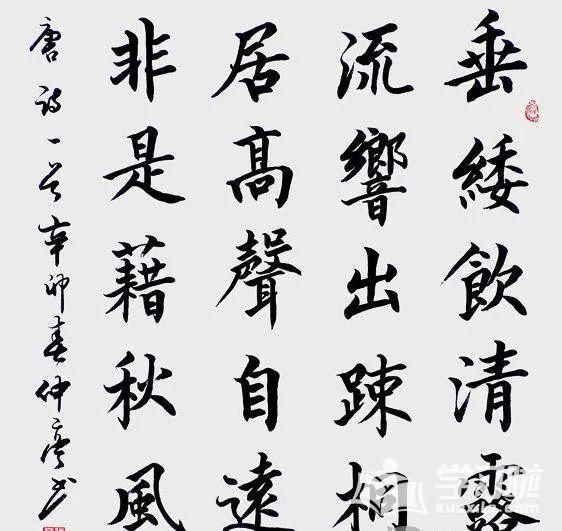 垂緌飲清露
流響出踈桐
居高聲自遠
非是藉秋風
唐詩一首辛卯春仲书